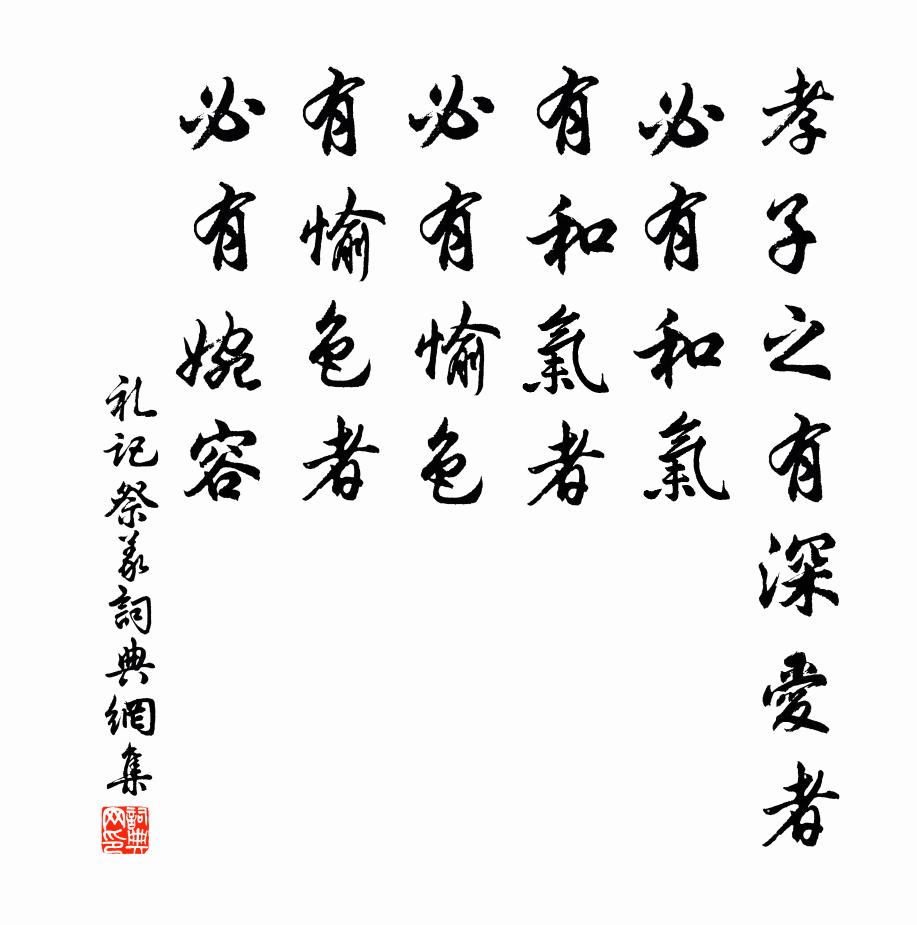 孝子之有深愛者
必有和氣
有和氣者
必有愉色
有愉色者
必有婉容
礼记祭义詞典網集
詞典网印